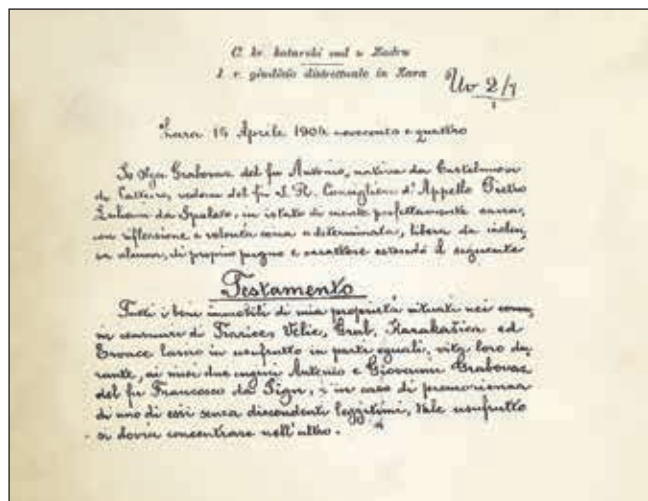 C. kr. kotarski sud u Zadru
I. r. giudizio distrettuale in Zara
Uv 2/7
1
Zara 15 Aprile 1904 novecento e quattro
Io Olga Grabovac del fu Antonio, nativa da Castelnuovo
di Cattaro, vedova del fu I. R. Consigliere d'Appello Pietro
da Spalato, in istato di mente perfettamente sana,
con riflessione e volontà sana e determinata, libera da
alcuna, di proprio pugno e carattere estendo il seguente
Testamento
Tutti i beni immobili di mia proprietà situati nei comu,
ni censuari di Velic, Grab, Karakašica ed
lascio in usufrutto in parti eguali, vita loro du,
rante, ai miei due cugini Antonio e Giovanni Grabovac
del fu Francesco da Sign, e in caso di premorienza
di uno di essi senza discendenti legittimi, tale usufrutto
si dovrà concentrare nell'altro.